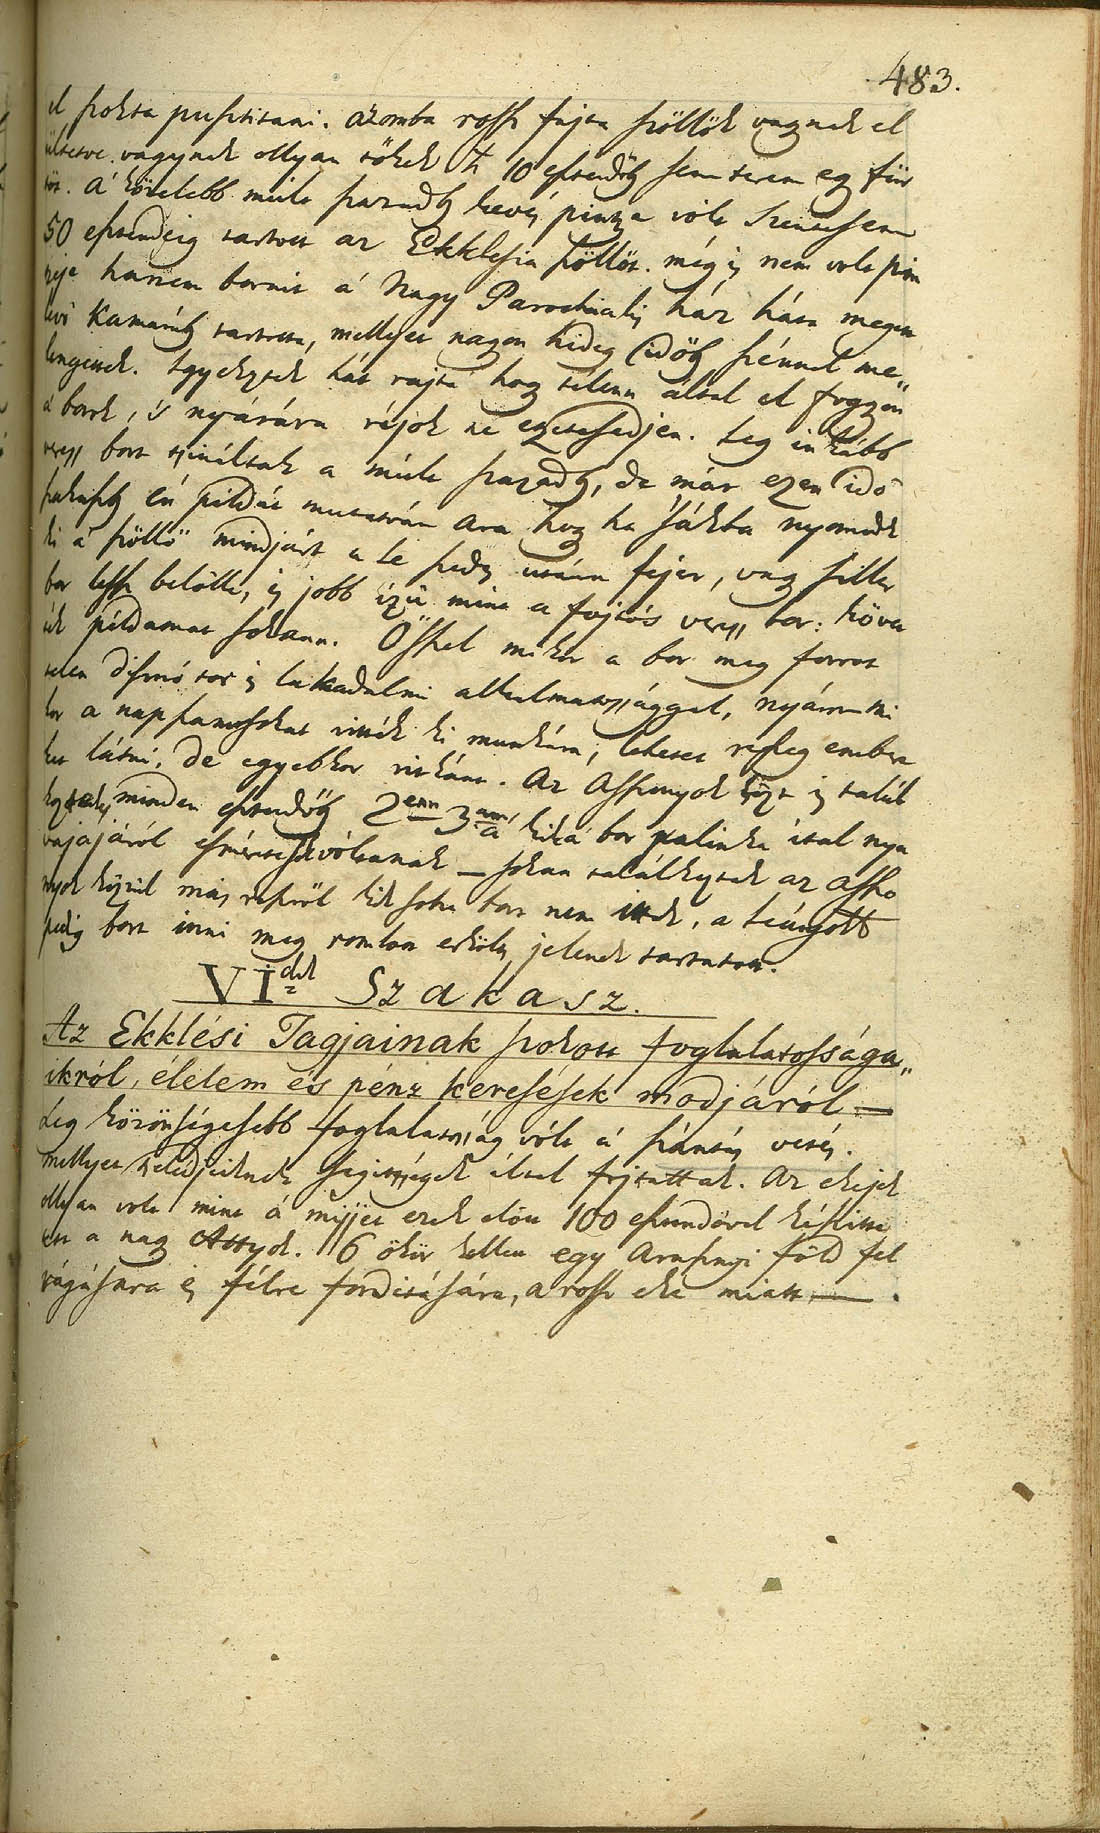 483.
el szokta pusztitani. azomba rossz fajta szőllők vagynak el
ültetve. vagynak ollyan tőkék h 10 esztendőb sem terem egy für
töt. A' közelebb múlt században kevés pintze vólt Szentesenn
50 esztendeig tartott az Ekklésia szőllőt. még is nem volt pin
tzéje hanem borait á Nagy Parochialis ház háta megett
lévő Kamaráb tartotta, mellyet nagyon hideg időb szénnel me„
lengettek. Igyekeztek hát rajta hogy télenn által el foggyon
a' borok, és nyárára rájok ne etzetesedjen. Leg inkább
veress bort tsináltak a múlt százádb, de már ezen idő
szakaszb én példát mutatván arra hogy ha 'sákba nyomódk
ki a' szőllő mindjárt a le szedés utánn fejér, vagy siller
bor lessz belőlle, is jobb izű mint a fojtós veress bor: követ
ték példámat sokann. Őszszel mikor a bor meg forrot
télen disznó tor is lakadalmi alkalmatossággal, nyáron mi
kor a napszámosokat vitték ki munkára, lehetett részeg embere
ket látni, de egyebkor ritkánn. Az Asszonyok közt is talál
koztak minden esztendőb 2enn 3ann a' kik á bor palinka ital nya
valyájáról esmértesek vóltanak — sokan találkoztak az Asszo
nyok közzül más részről kik soha bort nem ittak, a leányoktól
pedig bort inni meg romlott erkölts jelenek tartatott.
VIdik Szakasz.
Az Ekklési Tagjainak szokott foglalatossága„
ikról, élelem és pénz keresések modjáról —
Leg közönségesebb foglalatosság vólt á szántás vetés.
mellyet tselédjeiknek segittségek által fojtattak. Az ekéjek
ollyan volt mint á mijjet ezek előtt 100 esztendővel készitte
tett a nagy Attyok. 6 ökör kellett egy arasznyi föld fel
vágására is félre forditására, a rossz eke miatt —.